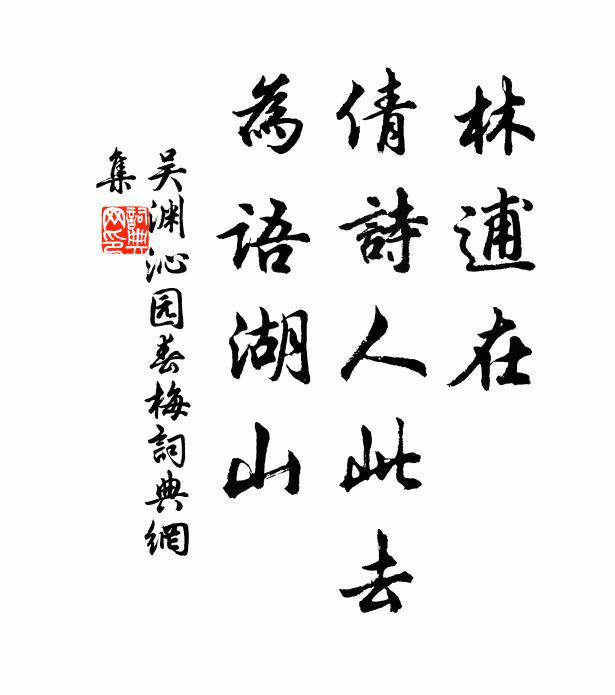 林逋在
倩詩人此去
為語湖山
吴渊沁园春梅詞典網
集
詞典網印